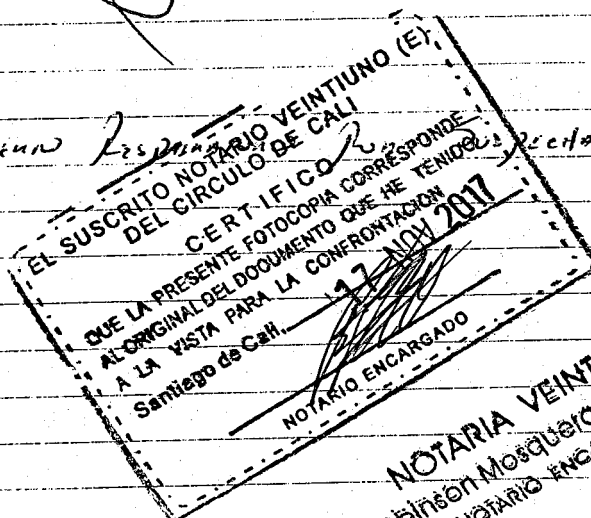 EL SUSCRITO NOTARIO VEINTIUNO (E)
DEL CIRCULO DE CALI
CERTIFICO
QUE LA PRESENTE FOTOCOPIA CORRESPONDE
AL ORIGINAL DEL DOCUMENTO QUE HE TENIDO
A LA VISTA PARA LA CONFRONTACION
Santiago de Cali, 17 NOV 2017
NOTARIO ENCARGADO
NOTARIA VEINT
binson Mosquera
NOTARIO ENCA